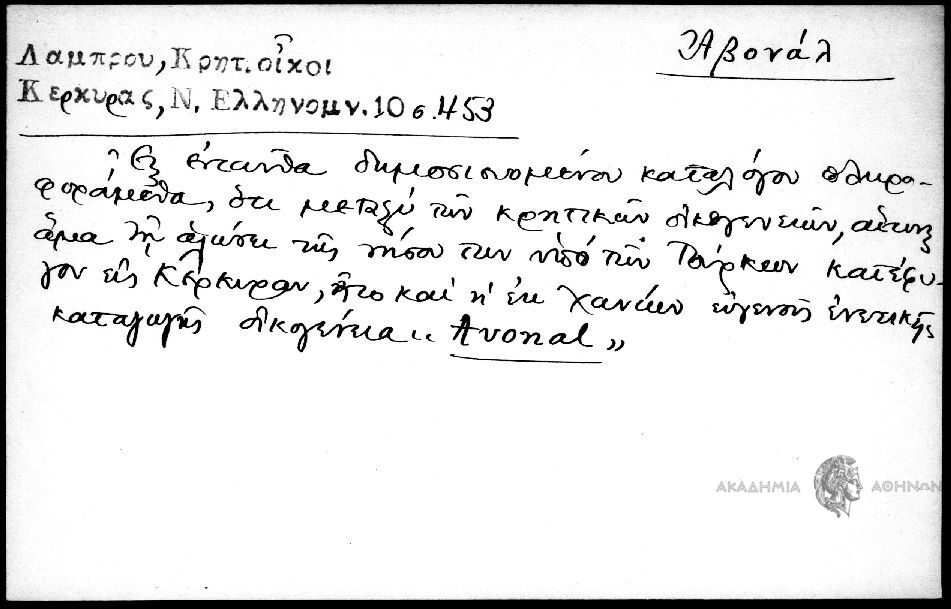 Ἀβονάλ
Λαμπρου, Κρητ. οἶκοι
Κερκυρας, Ν. Ελληνομν. 10 σ. 453
Ἐξ ἐνταῦθα δημοσιευομένου καταλόγου πληρο-
φορούμεθα, ὅτι μεταξὺ τῶν κρητικῶν οἰκογενειῶν, αἵτινες
ἅμα τῇ ἁλώσει τῆς νήσου των ὑπὸ τῶν Τούρκων κατέφυ-
γον εἰς Κέρκυραν, ἦτο καὶ ἡ ἐκ Χανίων εὐγενὴς ἐνετικῆς
καταγωγῆς οἰκογένεια „ Avonal „
ΑΚΑΔΗΜΙΑ ΑΘΗΝΩΝ